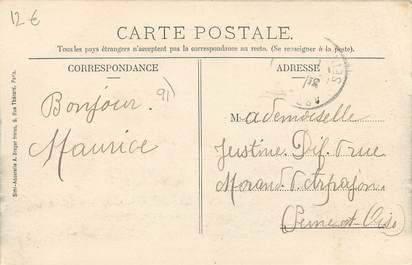 12 €
CARTE POSTALE.
Tous les pays étrangers n'acceptent pas la correspondance au recto. (Se renseigner à la poste).
CORRESPONDANCE
ADRESSE
91
Bonjour
Maurice
Mademoiselle
Justine Dif. rue
Morand. Arpajon
(Seine-et-Oise)
Simi-Aquarelle A. Breger frères, 9, Rue Thénard, Paris.